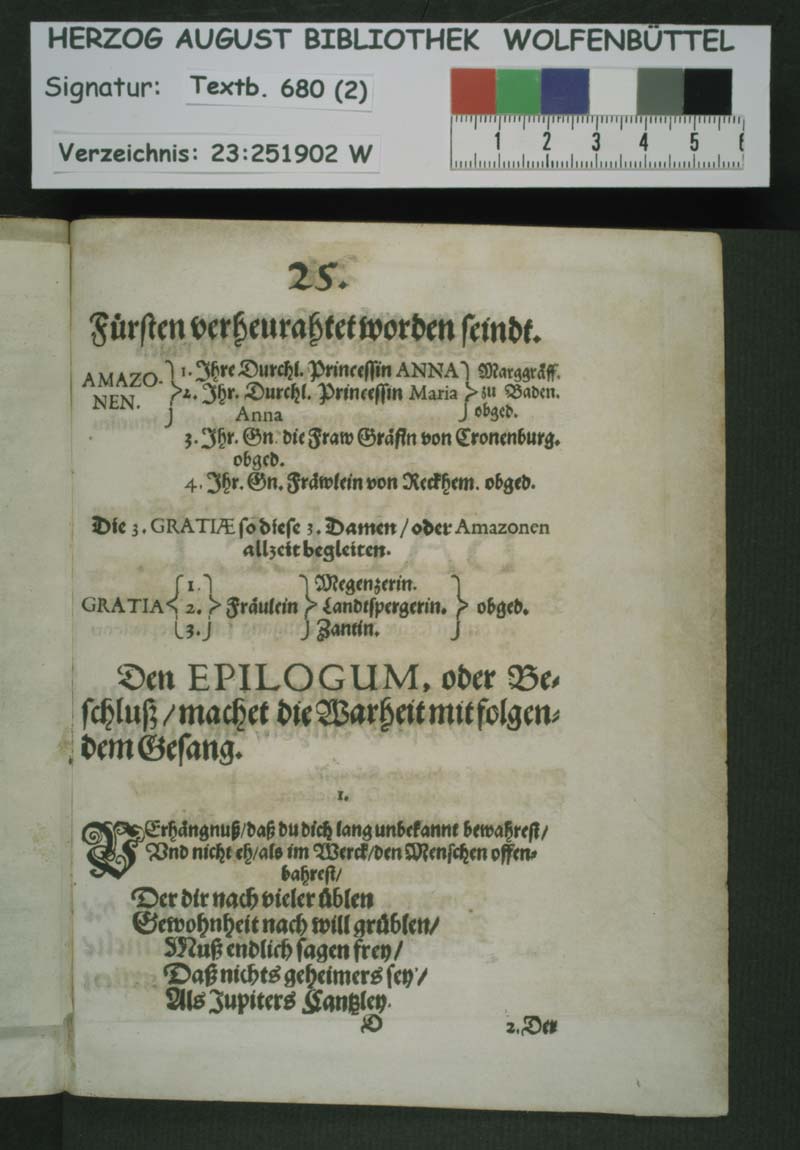 HERZOG AUGUST BIBLIOTHEK WOLFENBÜTTEL
Signatur: Textb. 680 (2)
Verzeichnis: 23:251902 W
1 2 3 4 5 6
25.
Fürsten verheurahtet worden seindt.
AMAZO-NEN. 1. Ihre Durchl. Princessin ANNA
2. Ihr. Durchl. Princessin Maria Anna
Marggräff. zu Baden. obged.
3. Ihr. Gn. die Fraw Gräfin von Cronenburg.
obged.
4. Ihr. Gn. Fräwlein von Reckhem. obged.
Die 3. GRATIÆ so diese 3. Damen / oder Amazonen
allzeit begleiten.
GRATIA 1. 2. 3. Fräulein
Megenzerin.
Landtspergerin. obged.
Zantin.
Den EPILOGUM, oder Be-
schluß / machet die Warheit mit folgen-
dem Gesang.
1.
VErhängnuß/daß du dich lang unbekannt bewahrest/
Vnd nicht eh/als im Werck/den Menschen offen-
bahrest/
Der dir nach vieler üblen
Gewohnheit nach will grüblen/
Muß endlich sagen frey/
Daß nichts geheimers sey/
Als Jupiters Cantzley.
D 2. Der